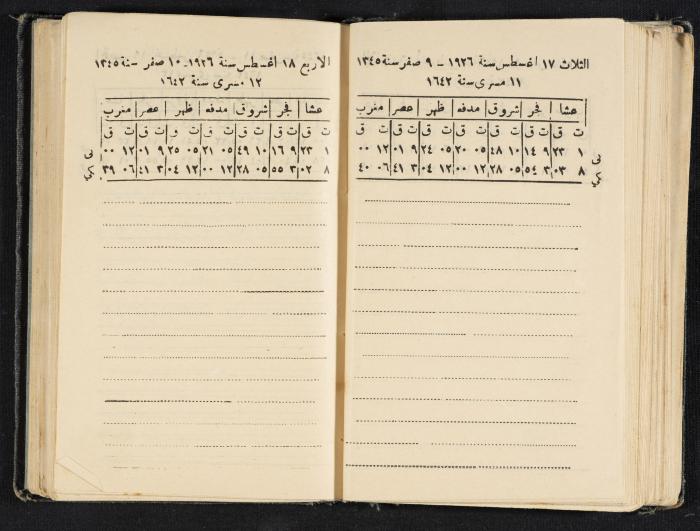 الثلاث ١٧ اغسطس سنة ١٩٢٦ – ٩ صفر سنة ١٣٤٥
١١ مسرى سنة ١٦٤٢
عشا فجر شروق مدفه ظهر عصر مغرب
ت ق ت ق ت ق ت ق ت ق ت ق ت ق
١ ٢٣ ٩ ١٤ ١٠ ٤٨ ٠٥ ٢٠ ٠٥ ٢٤ ٩ ٠١ ١٢ ٠٠
٨ ٠٣ ٣ ٥٤ ٠٥ ٢٨ ١٢ ٠٠ ١٢ ٠٤ ٣ ٤١ ٠٦ ٤٠
الاربع ١٨ اغسطس سنة ١٩٢٦ – ١٠ صفر سنة ١٣٤٥
١٢ مسرى سنة ١٦٤٢
عشا فجر شروق مدفه ظهر عصر مغرب
ت ق ت ق ت ق ت ق ت و ت ق ت ق
١ ٢٣ ٩ ١٦ ١٠ ٤٩ ٠٥ ٢١ ٠٥ ٢٥ ٩ ٠١ ١٢ ٠٠
٨ ٠٢ ٣ ٥٥ ٠٥ ٢٨ ١٢ ٠٠ ١٢ ٠٤ ٣ ٤١ ٠٦ ٣٩